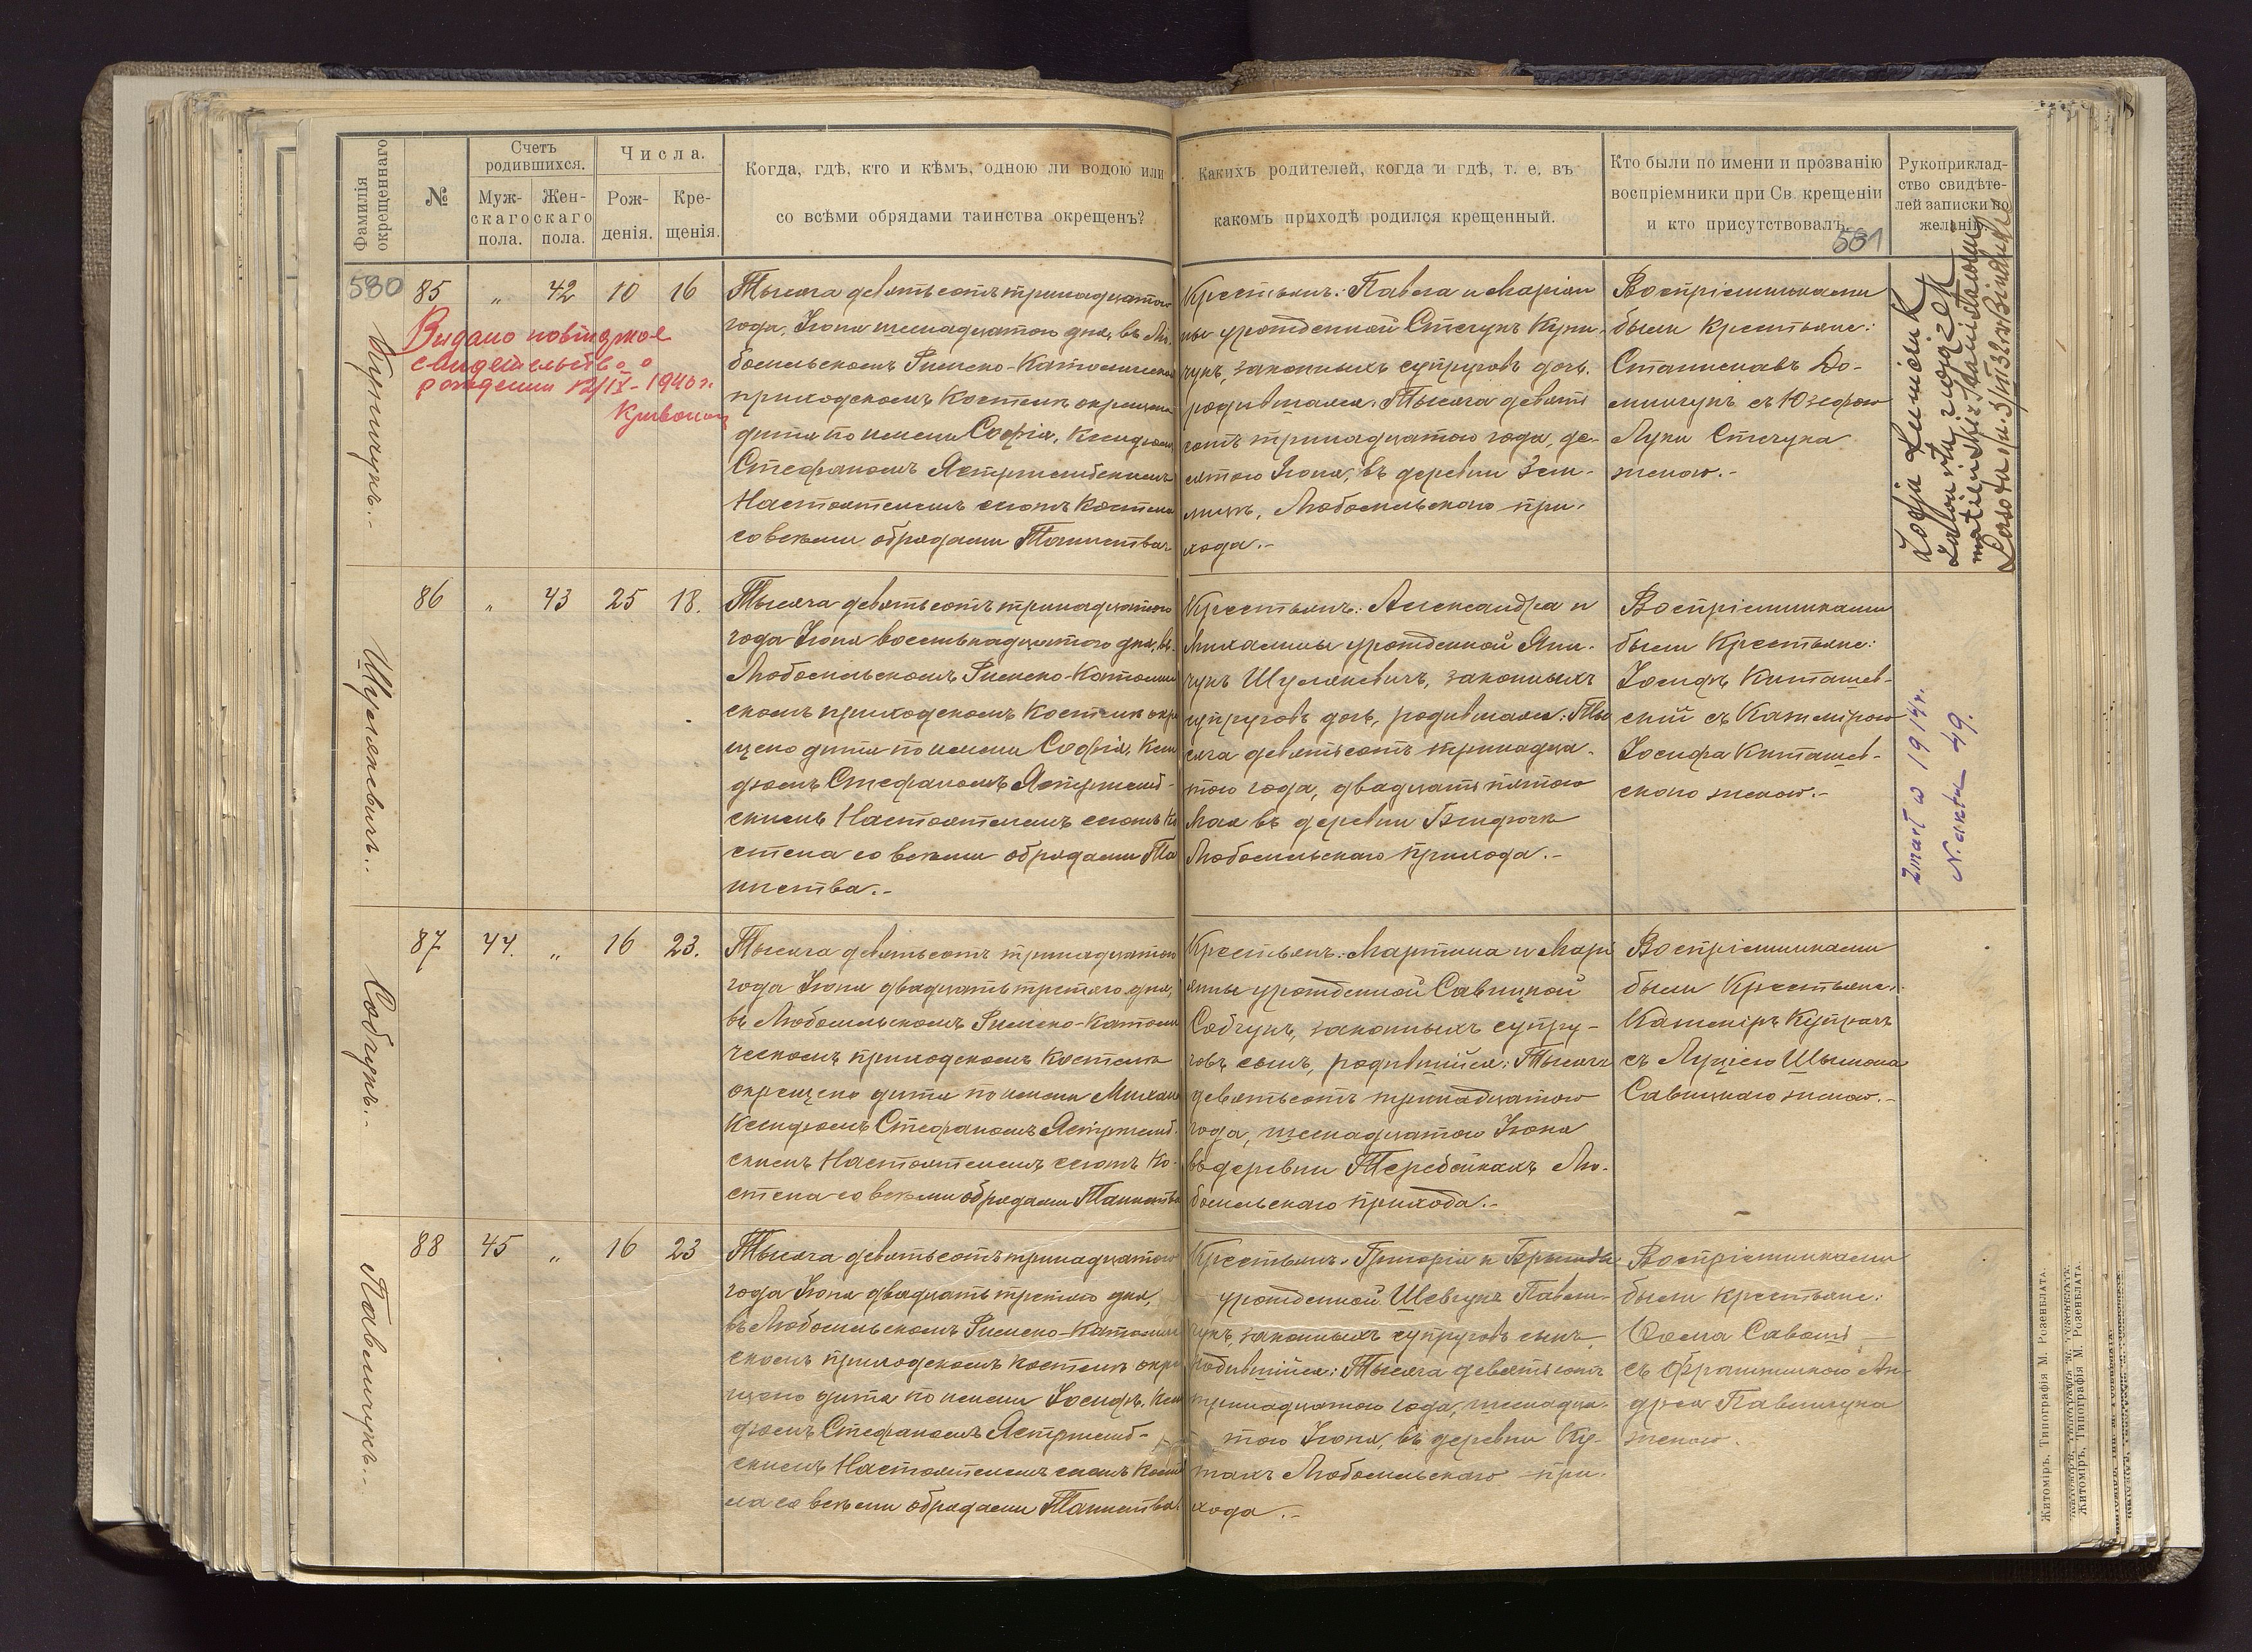 Фамилія
окрещеннаго
№
Счетъ
родившихся.
Муж-
скаго
пола.
Жен-
скаго
пола.
Числа.
Рож-
денія.
Кре-
щенія.
Когда, гдѣ, кто и кѣмъ, одною ли водою или
со всѣми обрядами таинства окрещенъ?
Какихъ родителей, когда и гдѣ, т. е. въ
какомъ приходѣ родился крещенный.
Кто были по имени и прозванію
воспріемники при Св. крещеніи
и кто присутствовалъ.
Рукоприклад-
ство свидѣте-
лей записки по
желанію.
580
581
85 " 42 10 16
Видано повторное
свидетельство о
рождении 12/IX-1940 г.
Тысяча девятьсотъ тринадцатого
года, Іюня шестнадцатого дня, въ Лю-
бомльскомъ Римско-Католическомъ
приходскомъ Костелѣ окрещено
дитя по имени Софія, Ксендзомъ
Стефаномъ Ястржембскимъ
Настоятелемъ сего Костела
со всѣми обрядами Таинства
Крестьянъ: Павла и Маріан-
ны урожденной Стечукъ
законныхъ супруговъ дочь,
родившаяся: Тысяча девять-
сотъ тринадцатого года, де-
сятого Іюня, въ деревни Зем-
лицѣ, Любомльскаго при-
хода.-
Воспріемниками
были крестьяне:
Станиславъ До-
минчукъ съ Юзефою
Луки Стечука
женою.-
86 " 43 25 18.
Шулякевичъ.-
Тысяча девятьсотъ тринадцатого
года Іюня восемьнадцатого дня, въ
Любомльскомъ Римско-Католиче-
скомъ приходскомъ Костелѣ окре-
щено дитя по имени Софія, Ксен-
дзомъ Стефаномъ Ястржемб-
скимъ Настоятелемъ сего Ко-
стела со всѣми обрядами Та-
инства.-
Крестьянъ: Александра и
Михалины урожденной Яни-
чукъ Шулякевичъ, законныхъ
супруговъ дочь, родившаяся: Ты-
сяча девятьсотъ тринадца-
того года, двадцать пятого
Мая въ деревни
Любомльскаго прихода.-
Воспріемниками
были Крестьяне:
Іосифъ Киташев-
скій съ Казимірою
Іосифа Киташев-
скаго женою.-
Zmarł w 1914 r.
N. aktu 49.
87 44. " 16 23.
Собчукъ.-
Тысяча девятьсотъ тринадцатого
года Іюня двадцать третьяго дня,
въ Любомльскомъ Римско-Католи-
ческомъ приходскомъ Костелѣ
окрещено дитя по имени Михаилъ
Ксендзомъ Стефаномъ Ястржемб-
скимъ Настоятелемъ сего Ко-
стела со всѣми обрядами Таинства
Крестьянъ: Мартина и Марі-
янны урожденной Савицкой
Собчукъ, законныхъ супру-
говъ сынъ, родившійся: Тысяча
девятьсотъ тринадцатого
года, шестнадцатого Іюня
въ деревни Теребейкахъ Лю-
бомльскаго прихода.-
Воспріемниками
были Крестьяне:
Казиміръ
съ Луціею Шымона
Савицкаго женою.-
88 45 " 16 23
Павличукъ.-
Тысяча девятьсотъ тринадцатого
года Іюня двадцать третьяго дня,
въ Любомльскомъ Римско-Католиче-
скомъ приходскомъ Костелѣ окре-
щено дитя по имени Іосифъ, Ксен-
дзомъ Стефаномъ Ястржемб-
скимъ Настоятелемъ сего Косте-
ла со всѣми обрядами Таинства.
Крестьянъ: Григорія и
урожденной Шевчукъ Павли-
чукъ, законныхъ супруговъ сынъ
родившійся: Тысяча девятьсотъ
тринадцатого года, шестнадца-
того Іюня, въ деревни Ку-
тахъ Любомльскаго при-
хода.-
Воспріемниками
были крестьяне:
Ѳома
съ Франтишкою Ан-
дрея Павличука
женою.
Житоміръ, Типографія М. Розенблата.
Житоміръ, Типографія М. Розенблата.